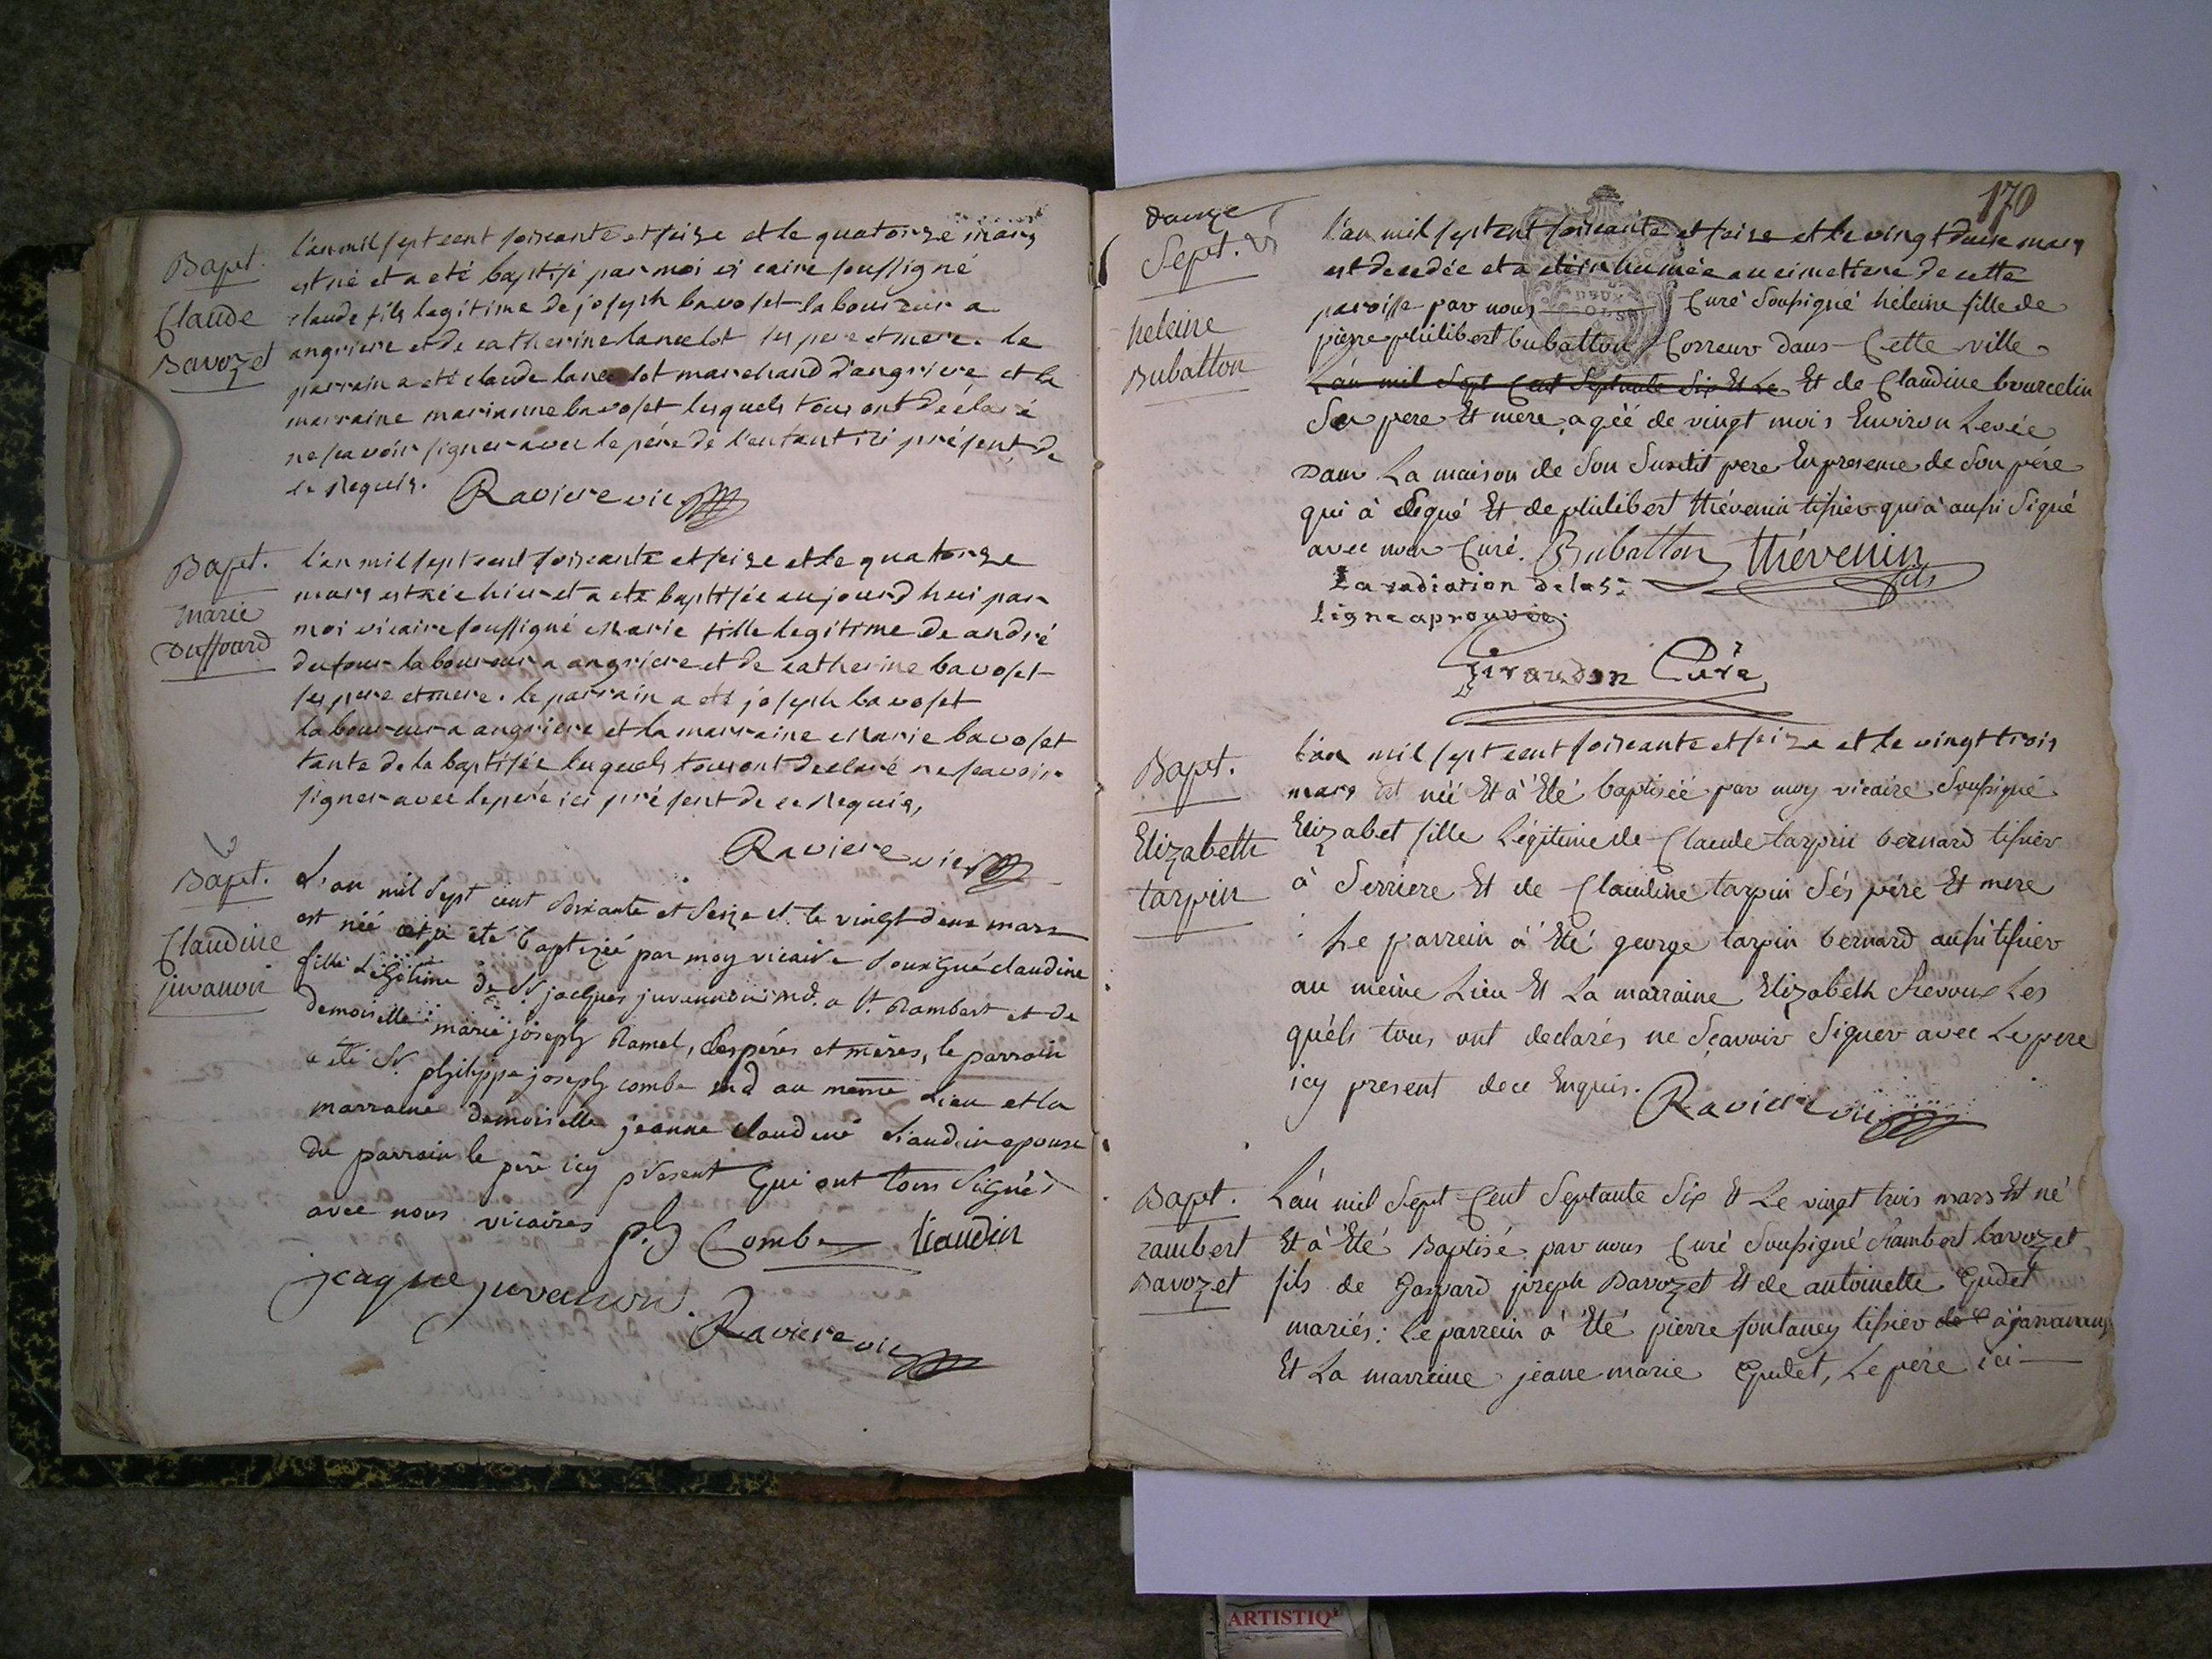 Bapt.
Claude
Bavozet
l'an mil sept cent soixante et seize et le quatorze mars
est né et a eté baptisé par moi vicaire soussigné
claude fils legitime de joseph bavoset laboureur a
angriere et de catherine lancelot ses pere et mere. le
parrain a eté claude lancelot marchand d'angriere et la
marraine marianne bavoset lesquels tous ont déclaré
ne scavoir signer avec le pére de l'enfant ici présent, de
ce Requis. Raviere vic
Bapt.
marie
Duffourd
l'an mil sept cent soixante et seize et le quatorze
mars est née hier et a eté baptisée aujourd'hui par
moi vicaire soussigné Marie fille legitime de andré
dufour laboureur a angriere et de catherine bavoset
ses pere et mere. le parrain a eté joseph bavoset
laboureur a angriere et la marraine Marie bavoset
tante de la baptisée lesquels tous ont declaré ne scavoir
signer avec le pere ici présent de ce Requis,
Raviere vic
Bapt.
Claudine
juvanon
L'an mil Sept cent Soixante et Seize et le vingt deux mars
est née et a été baptizée par moy vicaire Sousigné claudine
fille Légitime de Sr jacques juvannon md. a St. Rambert et de
demoiselle marie joseph Ramel, Ses péres et méres, le parrain
a été Sr. philippe joseph combe md au même Lieu et la
marraine demoiselle jeanne claudine Liaudin epouse
du parrain le pere icy présent Qui ont tous Signés
avec nous vicaires ph Combe Liaudin
jcaque juvanon
Raviere vic
170
Sept.
heleine
Bubatton
l'an mil sept cent soixante et seize et le vingt deux mars
est decedée et a eté inhumée au cimetiere de cette
paroisse par nous Curé Soussigné héleine fille de
pierre philibert bubatton Correur dans Cette ville
L'an mil Sept Cent Septante Six Et Le Et de Claudine bourcelin
Ses pere Et mere, agéé de vingt mois Environ Levée
Dans La maison de Son Susdit pere En presence de Son pére
qui à Signé Et de philibert thévenin tissier qui à aussi Signé
avec nous Curé. Bubatton thévenin
La radiation de la 5e
Ligne aprouvée.
Girandon Curé
Bapt.
Elizabeth
tarpin
l'an mil sept cent soixante et seize et le vingt trois
mars Est néé Et à Eté baptiséé par moy vicaire Soussigné
Elizabet fille Légitime de Claude tarpin bernard tissier
à Serriere Et de Claudine tarpin Sés pére Et mere
Le parrein à Eté george tarpin bernard aussi tissier
au même Lieu Et La marraine Elizabeth Les
quéls tous ont declarés ne Sçavoir Signer avec Le pere
icy present de ce Enquis. Raviere vic
Bapt.
rambert
Bavozet
L'an mil Sept Cent Septante Six Et Le vingt trois mars Est né
Et à Eté Baptisé par nous Curé Soussigné Rambert bavozet
fils de Gaspard joseph Bavozet Et de antoinette Gudet
mariés: Le parrein à Eté pierre fontaney tissier
Et La marreine jeane marie Gudet, Le pére ici
ARTISTIQ